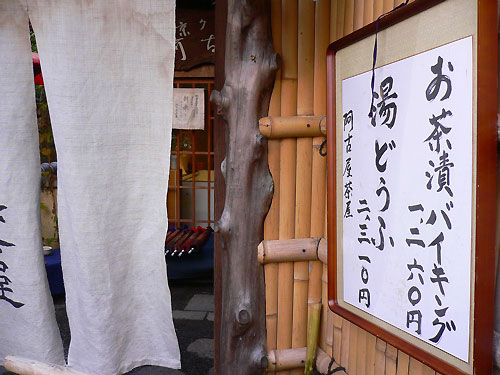 お茶漬バイキング
一二六〇円
湯どうふ
二、三一〇円
阿古屋茶屋